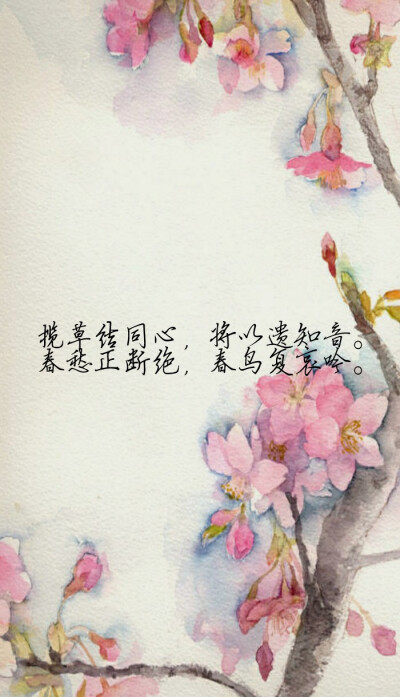 揽草结同心，将以遗知音。
春愁正断绝，春鸟复哀吟。